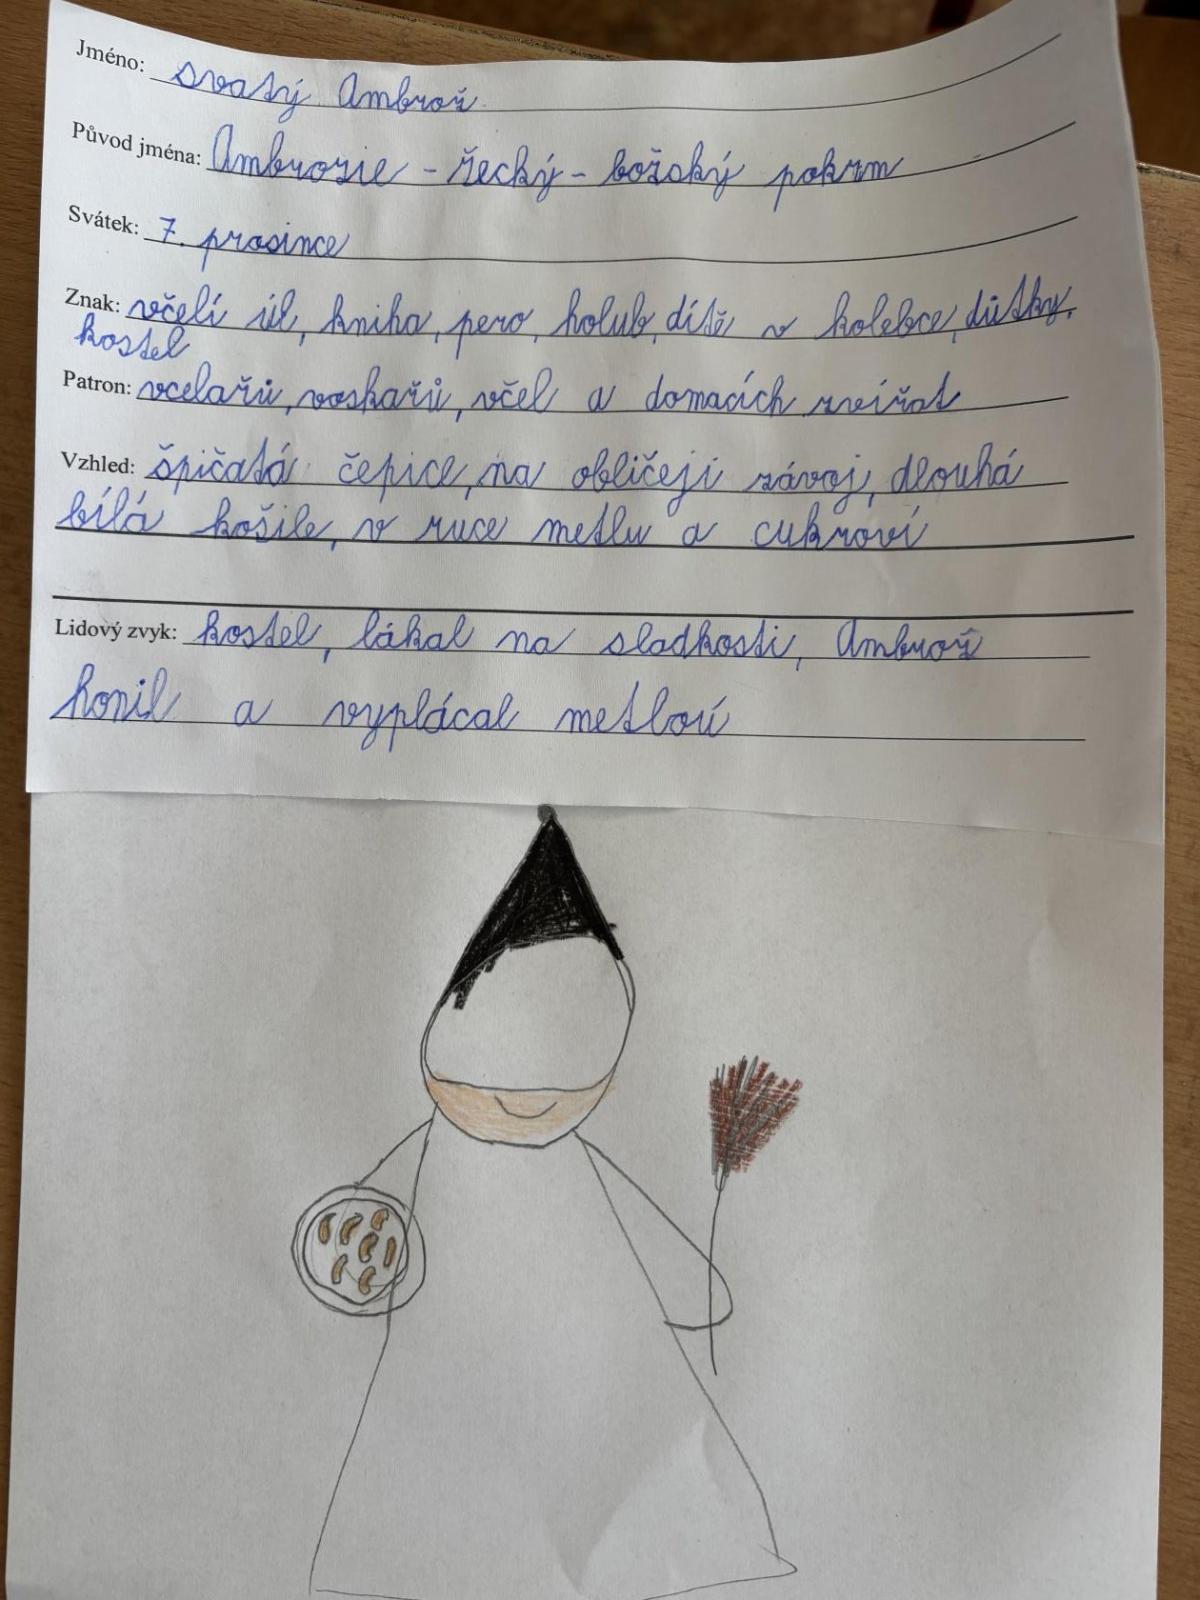 Jméno: svatý Ambrož
Původ jména: Ambrozie - řecký - božský pokrm
Svátek: 7. prosince
Znak: včelí úl, kniha, pero, holub, dítě v kolebce, důtky,
kostel
Patron: vcelařů, voskařů, včel a domacích zvířat
Vzhled: špičatá čepice, na obličeji závoj, dlouhá
bílá košile, v ruce metlu a cukroví
Lidový zvyk: kostel, lákal na sladkosti, Ambrož
honil a vyplácal metloú